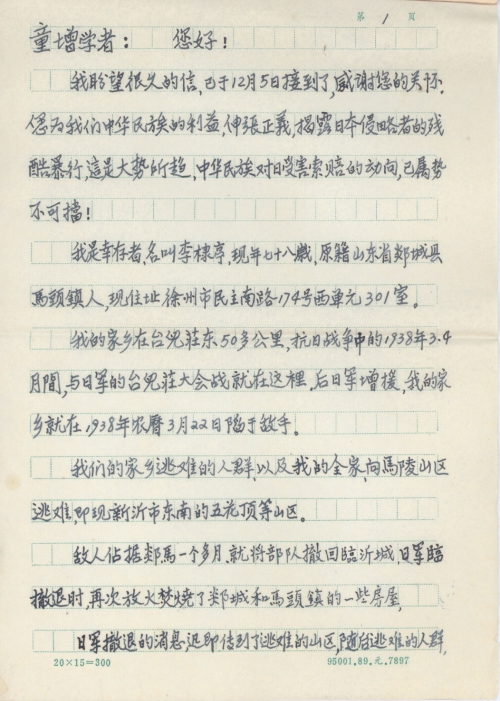 第 1 頁
童增学者： 您好！
我盼望很久的信，已于12月5日接到了，感谢您的关怀。
您为我们中华民族的利益，伸張正義，揭露日本侵略者的残
酷暴行，這是大势所趋，中华民族对日受害索赔的动向，已属势
不可擋！
我是幸存者，名叫李棣亭，现年七十八歲，原籍山东省郯城县
馬頭镇人，现住址徐州市民主南路174号西单元301室。
我的家乡在台兒莊东50多公里，抗日战争中的1938年3.4
月間，与日軍的台兒莊大会战就在这裡，后日軍增援，我的家
乡就在1938年农曆3月22日陷于敌手。
我们的家乡逃难的人群，以及我的全家，向馬陵山区
逃难，即现新沂市东南的五花顶等山区。
敌人佔据郯馬一个多月，就将部队撤回臨沂城，日軍臨
撤退时，再次放火焚燒了郯城和馬頭镇的一些房屋，
日軍撤退的消息，迅即传到了逃难的山区，随着逃难的人群，
20×15=300 95001.89.元.7897